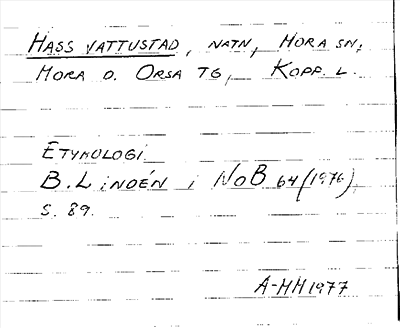 HASS VATTUSTAD, NATN, MORA SN,
MORA O. ORSA TG, KOPP. L.
ETYMOLOGI
B. LINDÉN i NoB 64 (1976),
S. 89.
A-MH 1977